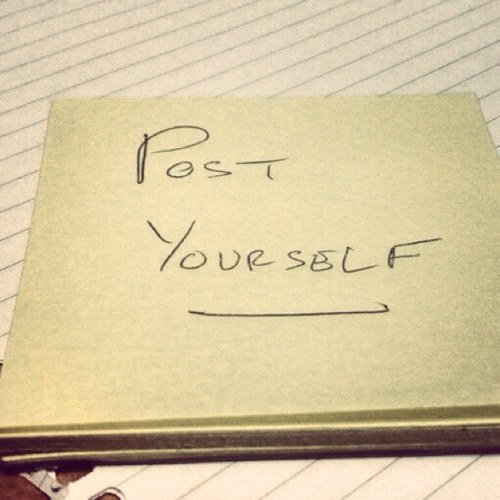 Post
Yourself